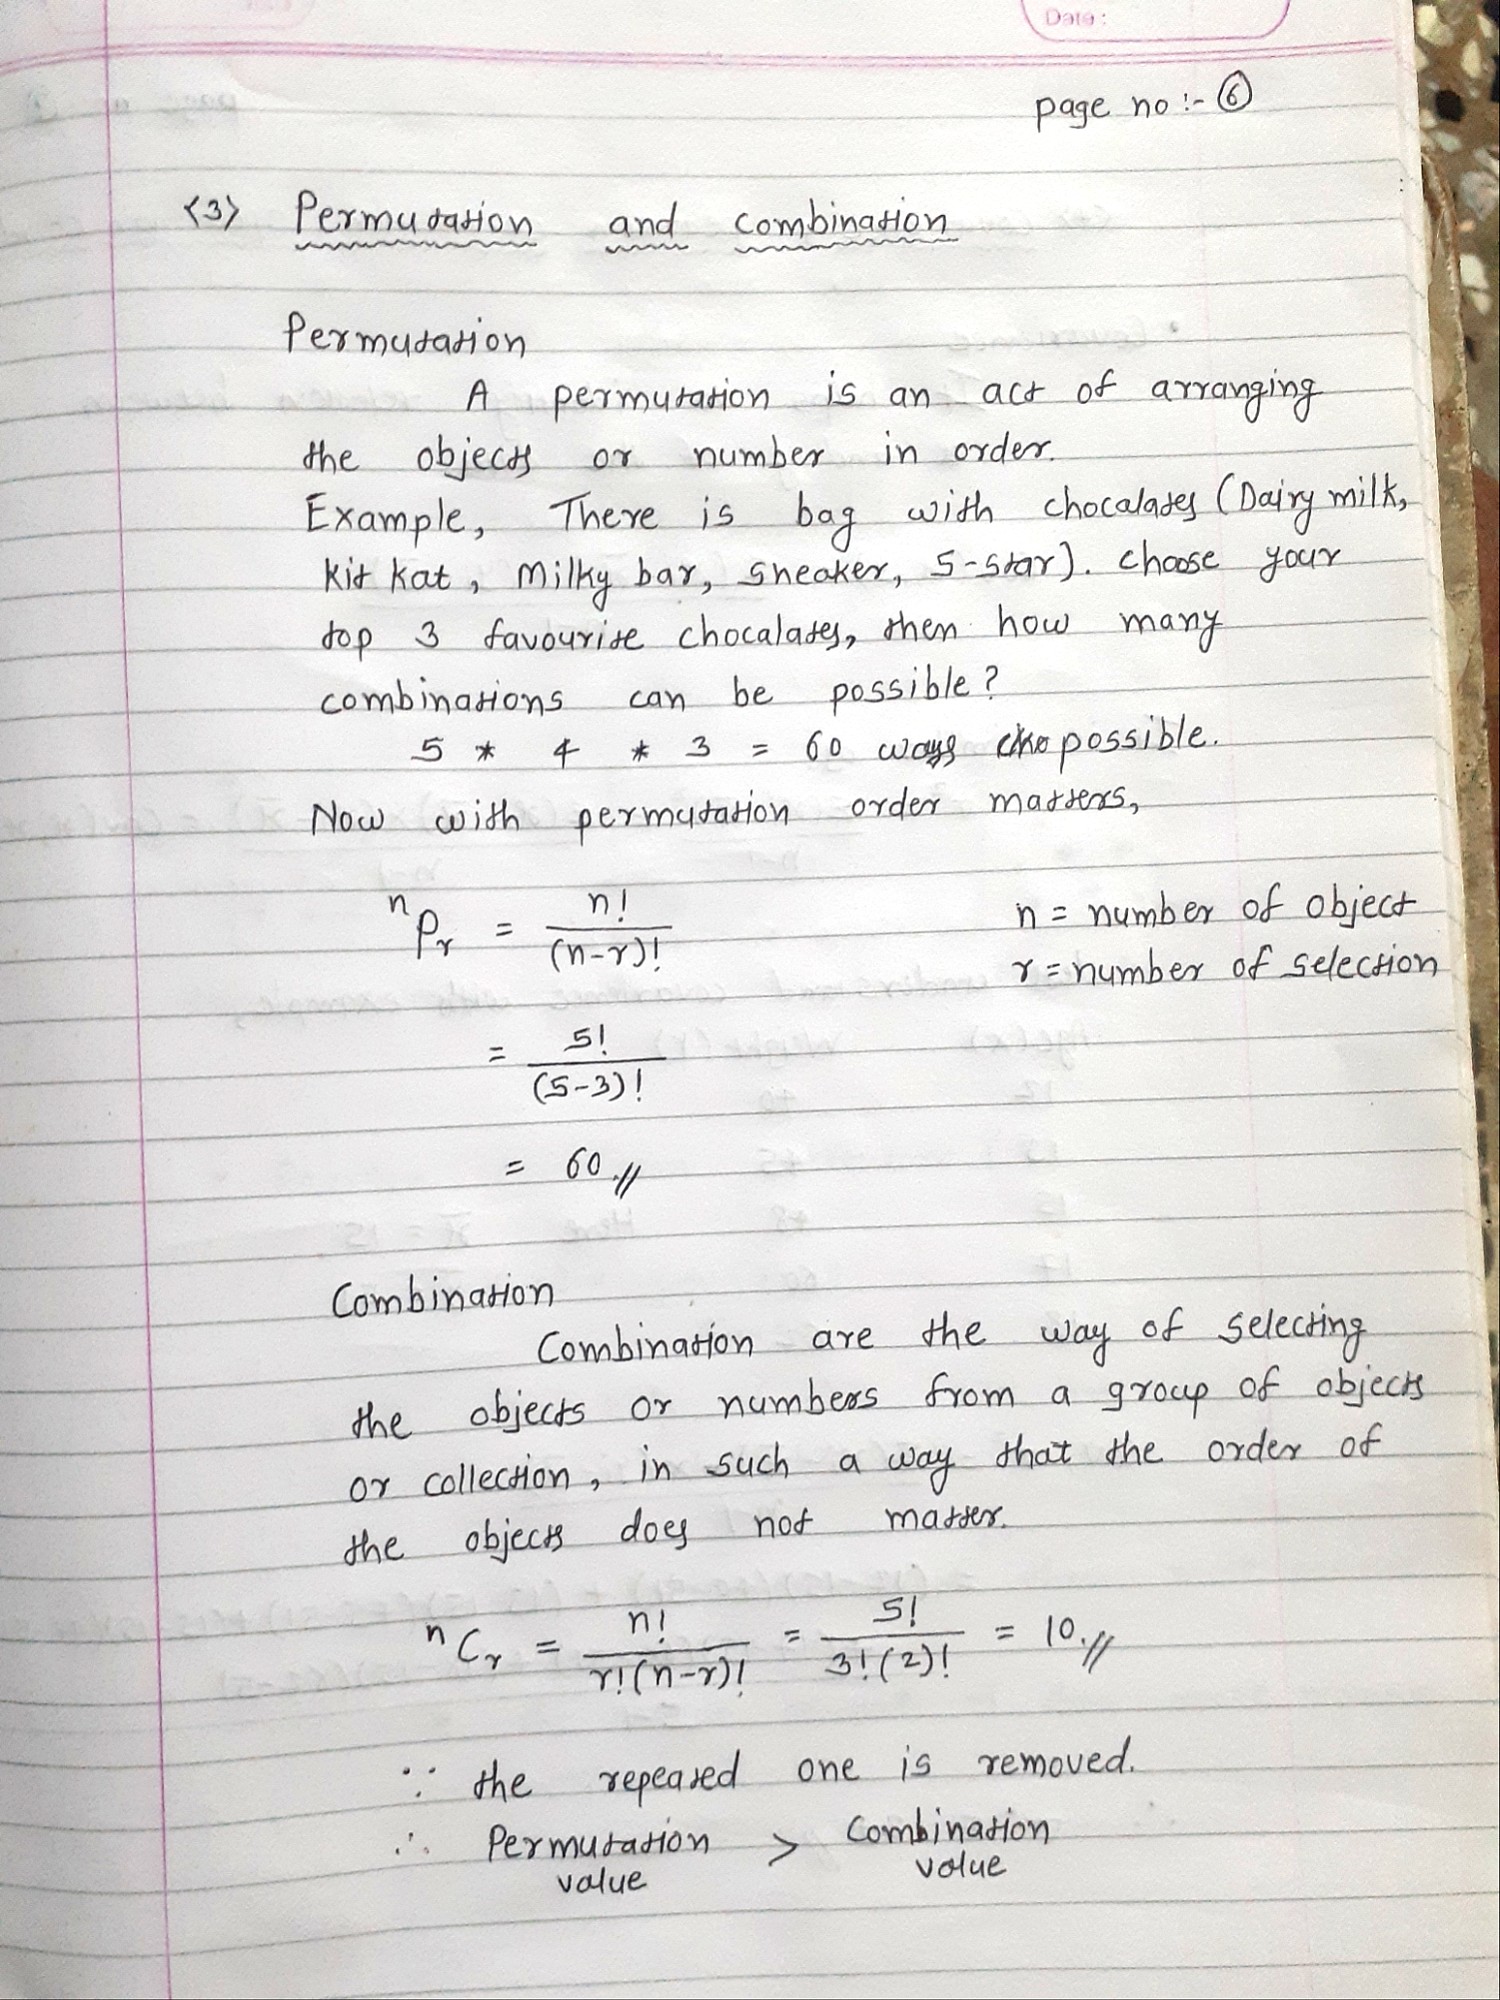 Date :
page no :- ⑥
<3> Permutation and combination
Permutation
A permutation is an act of arranging
the objects or number in order.
Example, There is bag with chocalates (Dairy milk,
kit kat, milky bar, sneaker, 5-star). choose your
top 3 favourite chocalates, then how many
combinations can be possible?
5 * 4 * 3 = 60 ways possible.
Now with permutation order matters,
ⁿPᵣ = n! / (n-r)!
n = number of object
r = number of selection
= 5! / (5-3)!
= 60.//
Combination
Combination are the way of selecting
the objects or numbers from a group of objects
or collection, in such a way that the order of
the objects does not matter.
ⁿCᵣ = n! / r!(n-r)! = 5! / 3!(2)! = 10.//
∵ the repeated one is removed.
∴ Permutation value > Combination value